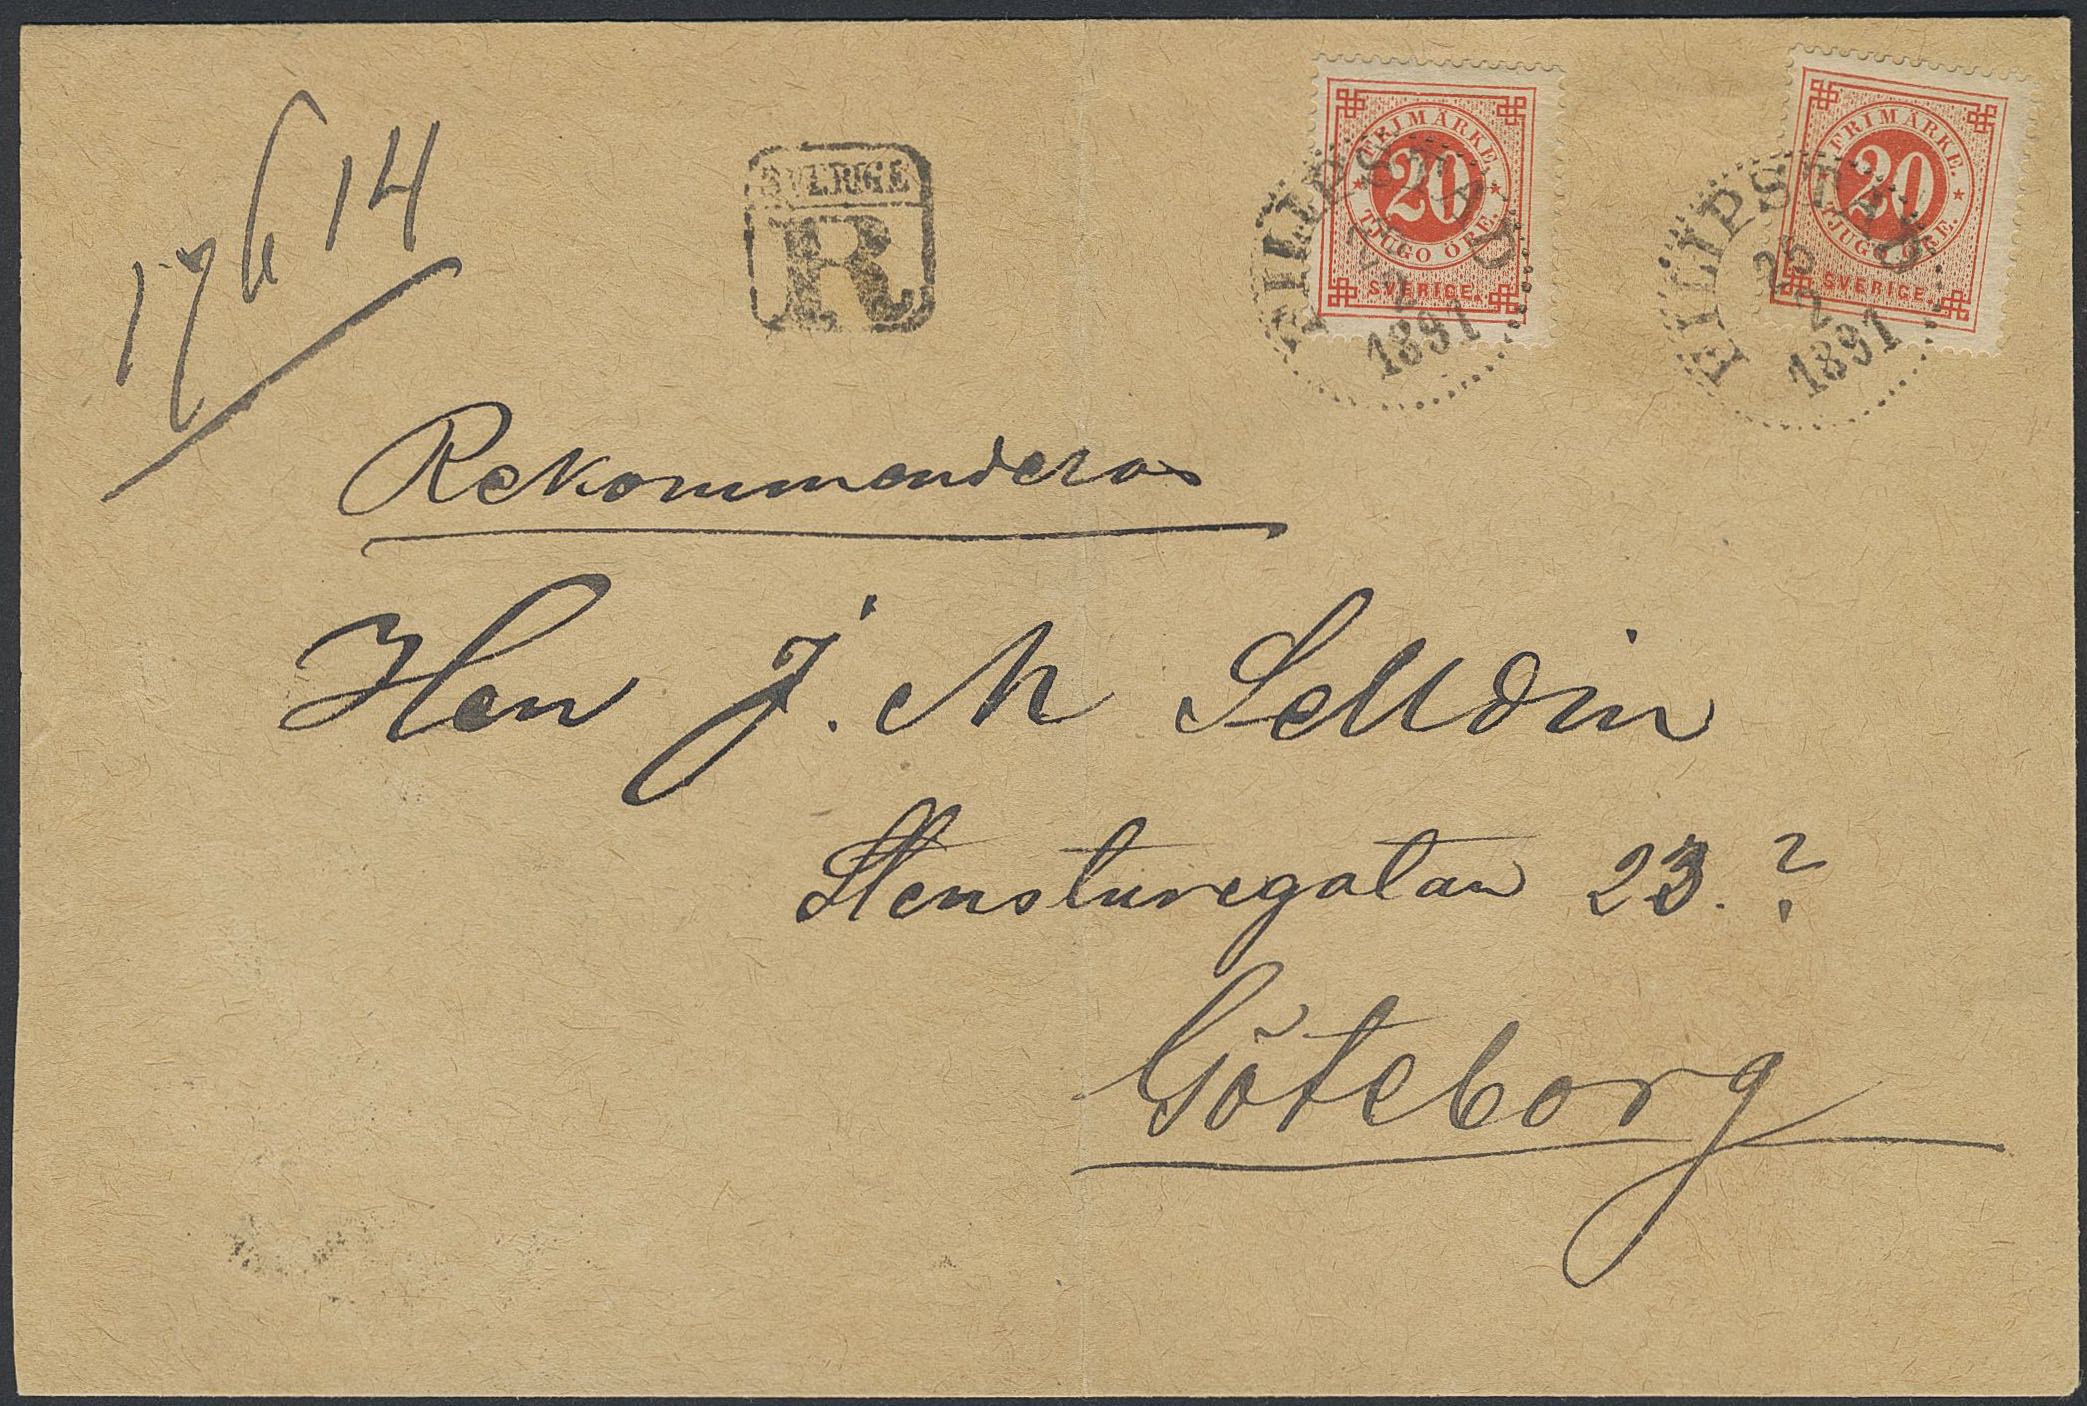 17614
SVERIGE
R
FRIMÄRKE.
20
TJUGO ÖRE.
SVERIGE.
FILIPSTAD
25
2
1891
FRIMÄRKE.
20
TJUGO ÖRE.
SVERIGE.
FILIPSTAD
25
2
1891
Rekommenderas
Herr J. M Selldin
Stensturegatan 23.?
Göteborg